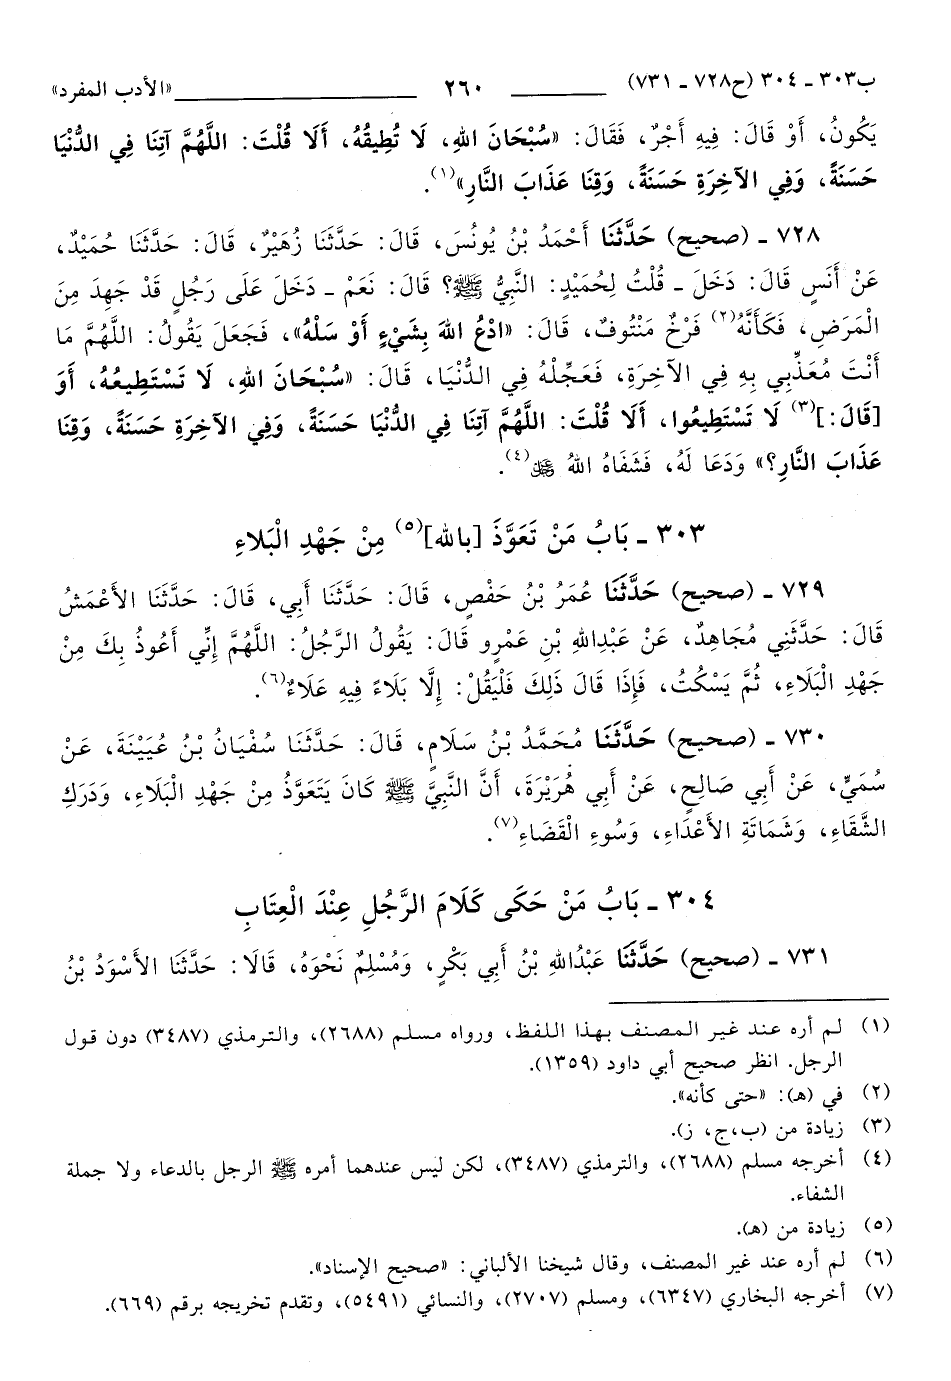 ب٣٠٣ ـ ٣٠٤ (ح٧٢٨ ـ ٧٣١) ٢٦٠ «الأدب المفرد»
يَكُونُ، أَوْ قَالَ: فِيهِ أَجْرٌ، فَقَالَ: «سُبْحَانَ اللهِ، لَا تُطِيقُهُ، أَلَا قُلْتَ: اللَّهُمَّ آتِنَا فِي الدُّنْيَا
حَسَنَةً، وَفِي الآخِرَةِ حَسَنَةً، وَقِنَا عَذَابَ النَّارِ»(١).
٧٢٨ ـ (صحيح) حَدَّثَنَا أَحْمَدُ بْنُ يُونُسَ، قَالَ: حَدَّثَنَا زُهَيْرٌ، قَالَ: حَدَّثَنَا حُمَيْدٌ،
عَنْ أَنَسٍ قَالَ: دَخَلَ ـ قُلْتُ لِحُمَيْدٍ: النَّبِيُّ ﷺ؟ قَالَ: نَعَمْ ـ دَخَلَ عَلَى رَجُلٍ قَدْ جَهِدَ مِنَ
الْمَرَضِ، فَكَأَنَّهُ(٢) فَرْخٌ مَنْتُوفٌ، قَالَ: «ادْعُ اللهَ بِشَيْءٍ أَوْ سَلْهُ»، فَجَعَلَ يَقُولُ: اللَّهُمَّ مَا
أَنْتَ مُعَذِّبِي بِهِ فِي الآخِرَةِ، فَعَجِّلْهُ فِي الدُّنْيَا، قَالَ: «سُبْحَانَ اللهِ، لَا تَسْتَطِيعُهُ، أَوَ
[قَالَ:](٣) لَا تَسْتَطِيعُوا، أَلَا قُلْتَ: اللَّهُمَّ آتِنَا فِي الدُّنْيَا حَسَنَةً، وَفِي الآخِرَةِ حَسَنَةً، وَقِنَا
عَذَابَ النَّارِ؟» وَدَعَا لَهُ، فَشَفَاهُ اللهُ ﷻ(٤).
٣٠٣ ـ بَابُ مَنْ تَعَوَّذَ [بالله](٥) مِنْ جَهْدِ الْبَلاءِ
٧٢٩ ـ (صحيح) حَدَّثَنَا عُمَرُ بْنُ حَفْصٍ، قَالَ: حَدَّثَنَا أَبِي، قَالَ: حَدَّثَنَا الأَعْمَشُ
قَالَ: حَدَّثَنِي مُجَاهِدٌ، عَنْ عَبْدِاللهِ بْنِ عَمْرٍو قَالَ: يَقُولُ الرَّجُلُ: اللَّهُمَّ إِنِّي أَعُوذُ بِكَ مِنْ
جَهْدِ الْبَلَاءِ، ثُمَّ يَسْكُتُ، فَإِذَا قَالَ ذَلِكَ فَلْيَقُلْ: إِلَّا بَلَاءً فِيهِ عَلَاءٌ(٦).
٧٣٠ ـ (صحيح) حَدَّثَنَا مُحَمَّدُ بْنُ سَلَامٍ، قَالَ: حَدَّثَنَا سُفْيَانُ بْنُ عُيَيْنَةَ، عَنْ
سُمَيٍّ، عَنْ أَبِي صَالِحٍ، عَنْ أَبِي هُرَيْرَةَ، أَنَّ النَّبِيَّ ﷺ كَانَ يَتَعَوَّذُ مِنْ جَهْدِ الْبَلَاءِ، وَدَرَكِ
الشَّقَاءِ، وَشَمَاتَةِ الأَعْدَاءِ، وَسُوءِ الْقَضَاءِ(٧).
٣٠٤ ـ بَابُ مَنْ حَكَى كَلَامَ الرَّجُلِ عِنْدَ الْعِتَابِ
٧٣١ ـ (صحيح) حَدَّثَنَا عَبْدُاللهِ بْنُ أَبِي بَكْرٍ، وَمُسْلِمٌ نَحْوَهُ، قَالَا: حَدَّثَنَا الأَسْوَدُ بْنُ
(١) لم أره عند غير المصنف بهذا اللفظ، ورواه مسلم (٢٦٨٨)، والترمذي (٣٤٨٧) دون قول
الرجل. انظر صحيح أبي داود (١٣٥٩).
(٢) في (هـ): «حتى كأنه».
(٣) زيادة من (ب،ج، ز).
(٤) أخرجه مسلم (٢٦٨٨)، والترمذي (٣٤٨٧)، لكن ليس عندهما أمره ﷺ الرجل بالدعاء ولا جملة
الشفاء.
(٥) زيادة من (هـ).
(٦) لم أره عند غير المصنف، وقال شيخنا الألباني: «صحيح الإسناد».
(٧) أخرجه البخاري (٦٣٤٧)، ومسلم (٢٧٠٧)، والنسائي (٥٤٩١)، وتقدم تخريجه برقم (٦٦٩).